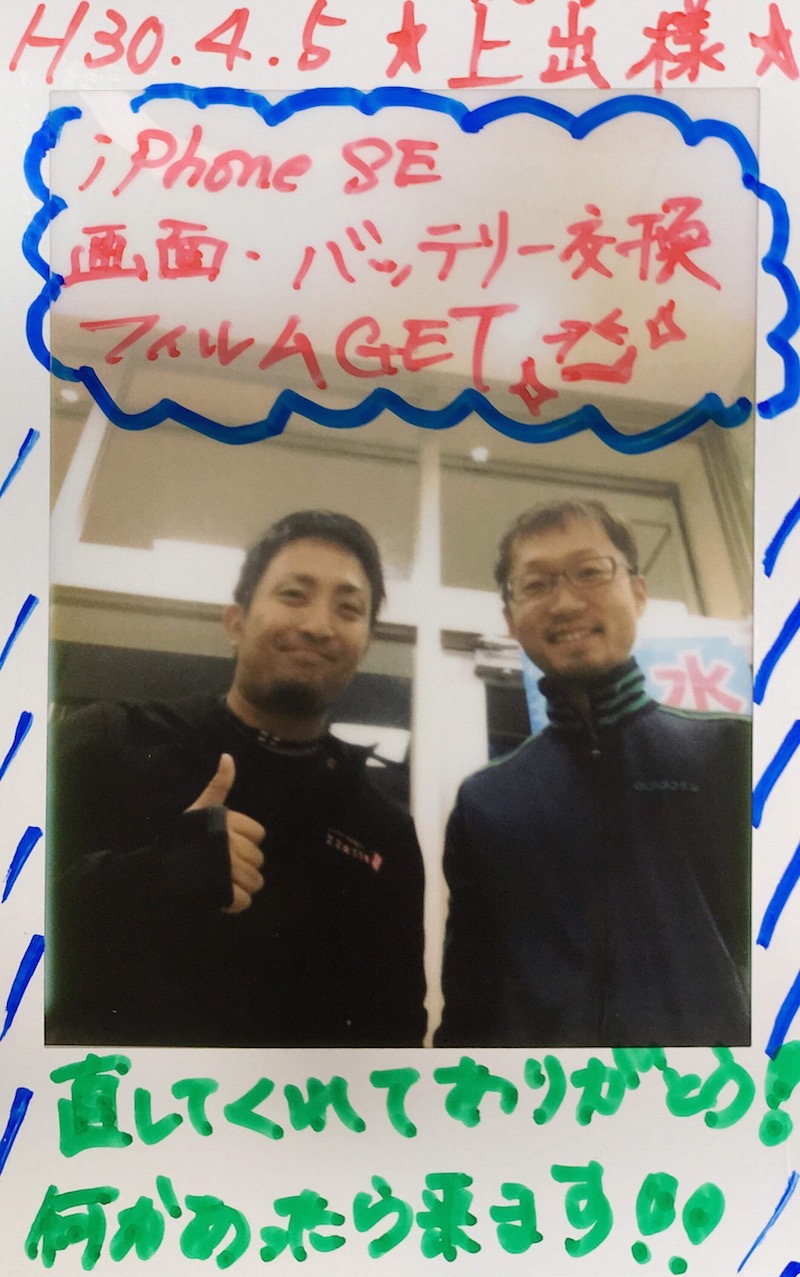 H30.4.5 ★ 上出様 ★
iPhone SE
画面・バッテリー交換
フィルムGET
水
adidas
直してくれてありがとう!
何かあったら来ます!!